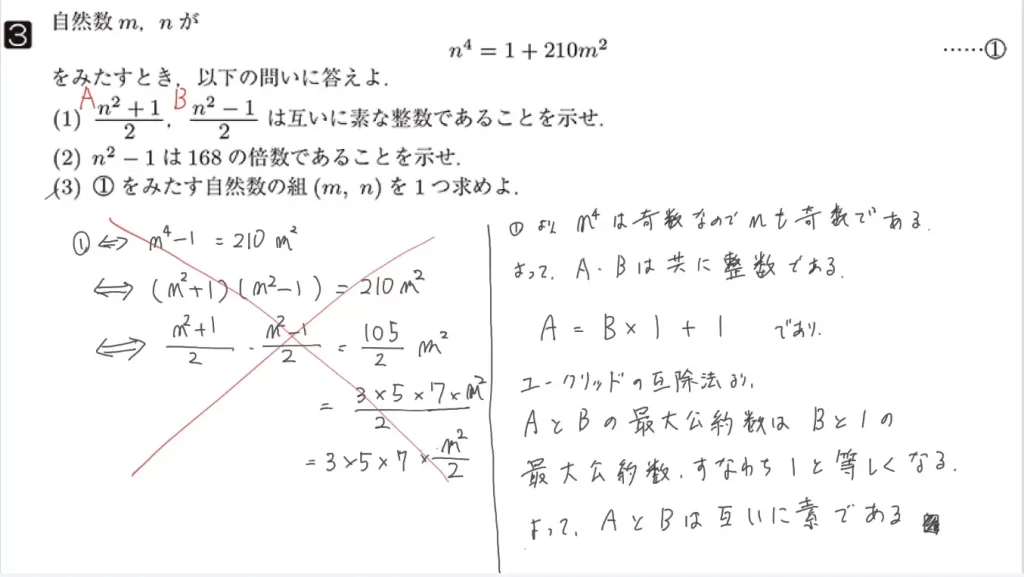 3
自然数 m, n が
n⁴ = 1 + 210m² ……①
をみたすとき, 以下の問いに答えよ.
A B
(1) (n² + 1)/2, (n² − 1)/2 は互いに素な整数であることを示せ.
(2) n² − 1 は 168 の倍数であることを示せ.
(3) ① をみたす自然数の組 (m, n) を 1 つ求めよ.
① ⇔ n⁴ − 1 = 210 m²
⇔ (n² + 1)(n² − 1) = 210 m²
⇔ (n² + 1)/2 · (n² − 1)/2 = 105/2 m²
= (3 × 5 × 7 × m²)/2
= 3 × 5 × 7 × m²/2
① より n⁴ は奇数なので n も奇数である.
よって, A・B は共に整数である.
A = B × 1 + 1 であり.
ユークリッドの互除法より,
A と B の最大公約数は B と 1 の
最大公約数, すなわち 1 と等しくなる.
よって, A と B は互いに素である